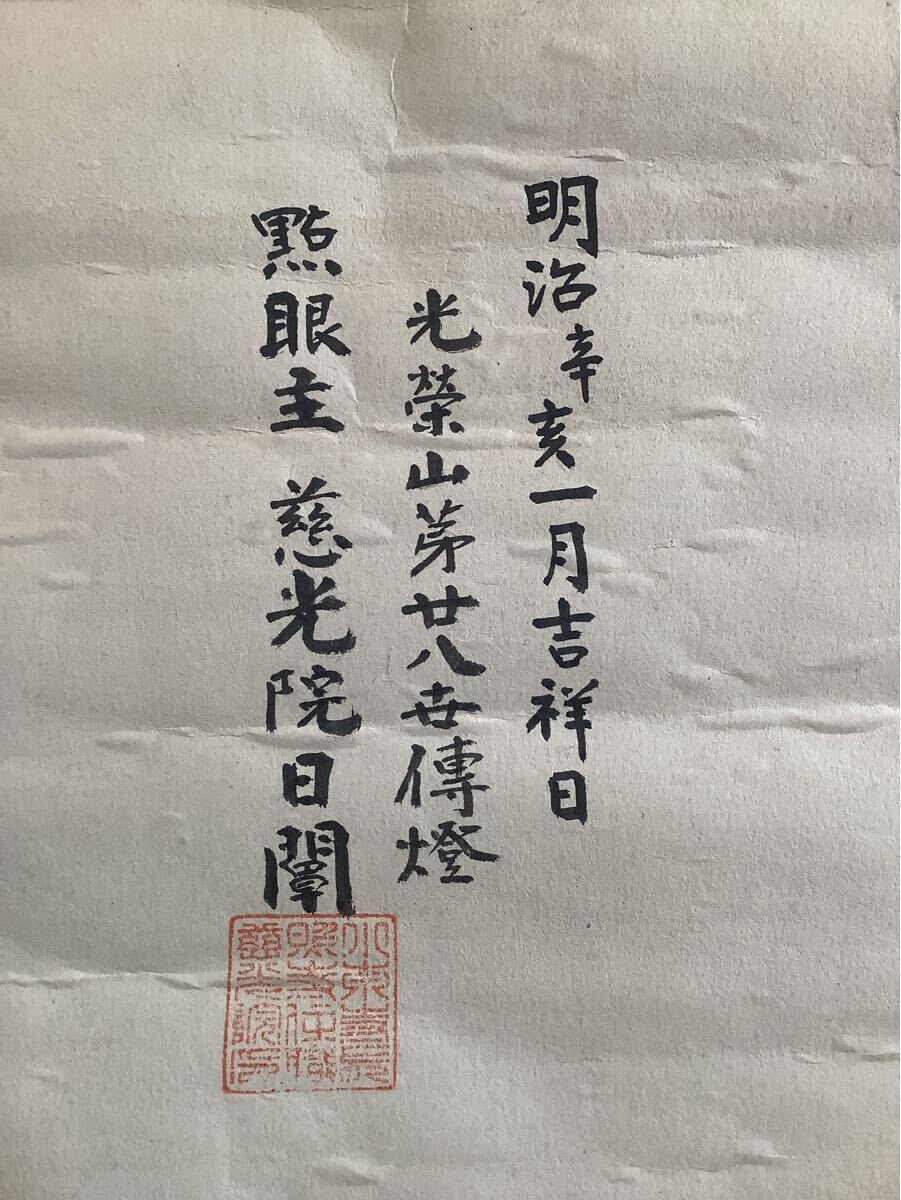 明治辛亥一月吉祥日
光榮山第廿八世傳燈
點眼主 慈光院日闡